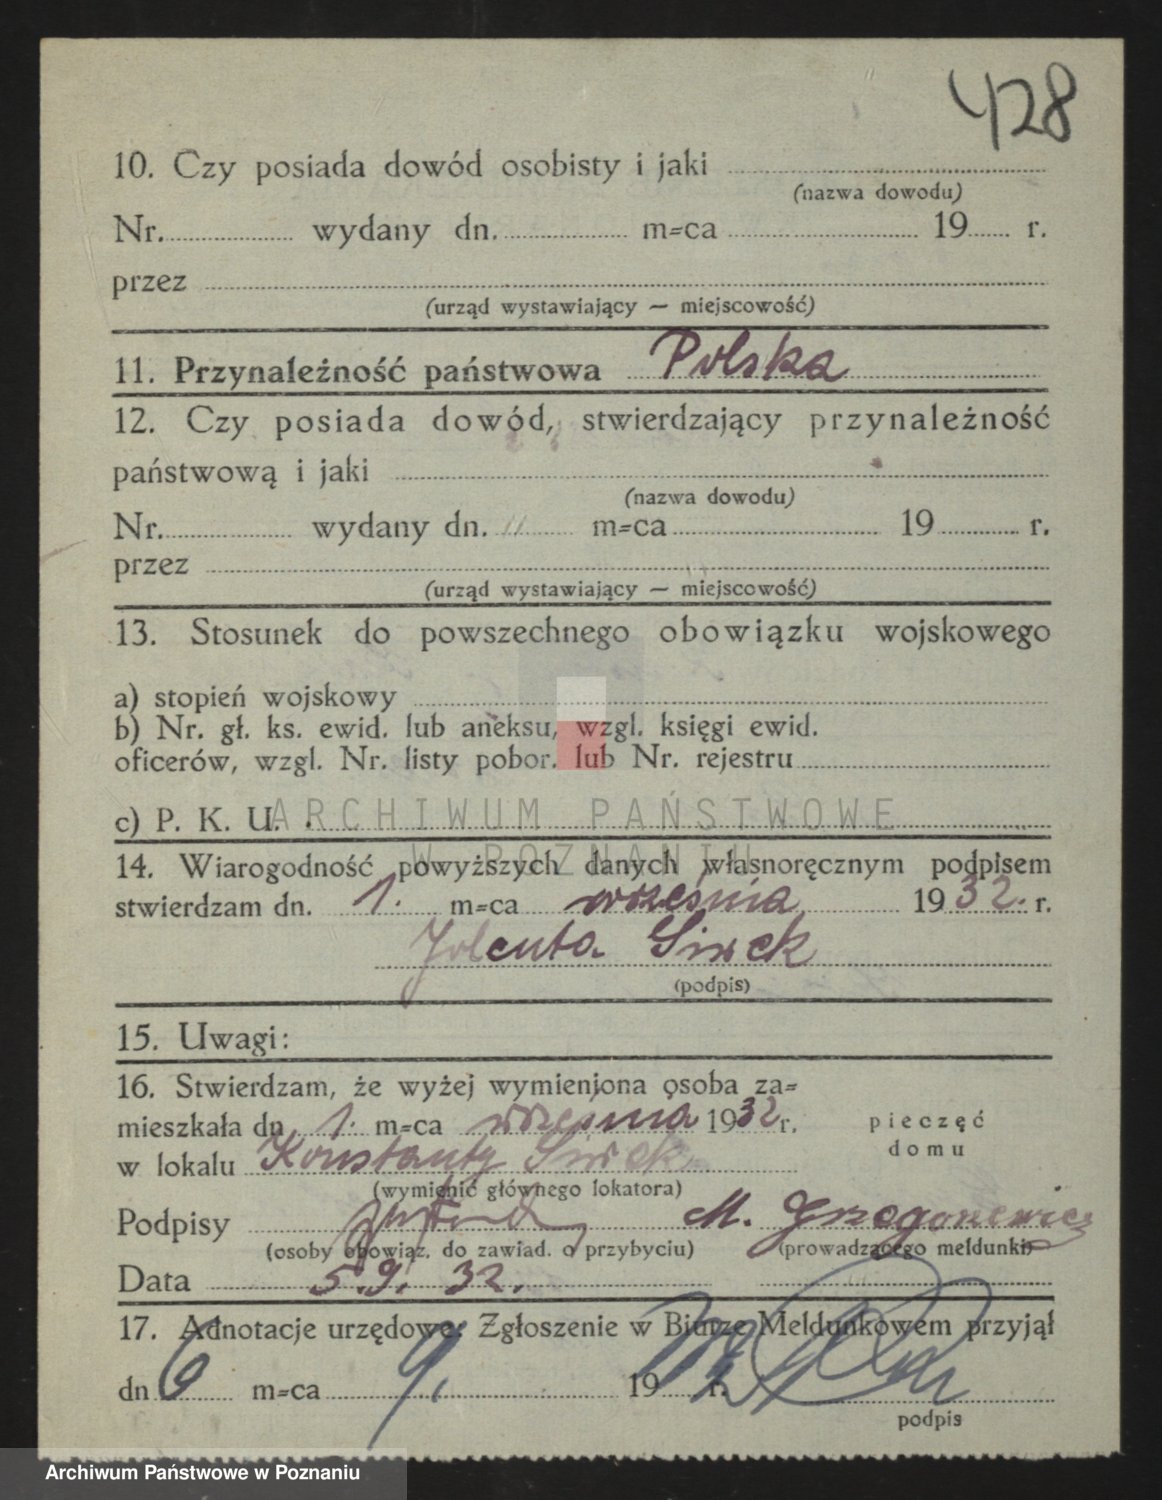 428
10. Czy posiada dowód osobisty i jaki
(nazwa dowodu)
Nr. wydany dn. m=ca 19 r.
przez
(urząd wystawiający — miejscowość)
11. Przynależność państwowa Polska
12. Czy posiada dowód, stwierdzający przynależność
państwową i jaki
(nazwa dowodu)
Nr. wydany dn. m=ca 19 r.
przez
(urząd wystawiający — miejscowość)
13. Stosunek do powszechnego obowiązku wojskowego
a) stopień wojskowy
b) Nr. gł. ks. ewid. lub aneksu, wzgl. księgi ewid.
oficerów, wzgl. Nr. listy pobor. lub Nr. rejestru
ARCHIWUM PAŃSTWOWE
c) P. K. U.
W POZNANIU
14. Wiarogodność powyższych danych własnoręcznym podpisem
stwierdzam dn. 1. m=ca września 1932. r.
Jolenta Siwek
(podpis)
15. Uwagi:
16. Stwierdzam, że wyżej wymieniona osoba za=
mieszkała dn 1. m=ca września 1932 r.
pieczęć
domu
w lokalu Konstanty Siwek
(wymienić głównego lokatora)
Podpisy M. Grzegorzewicz
(osoby obowiąz. do zawiad. o przybyciu) (prowadzącego meldunki)
Data 5.9. 32.
17. Adnotacje urzędowe: Zgłoszenie w Biurze Meldunkowem przyjął
dn 6 m=ca 9. 19 r.
podpis
Archiwum Państwowe w Poznaniu